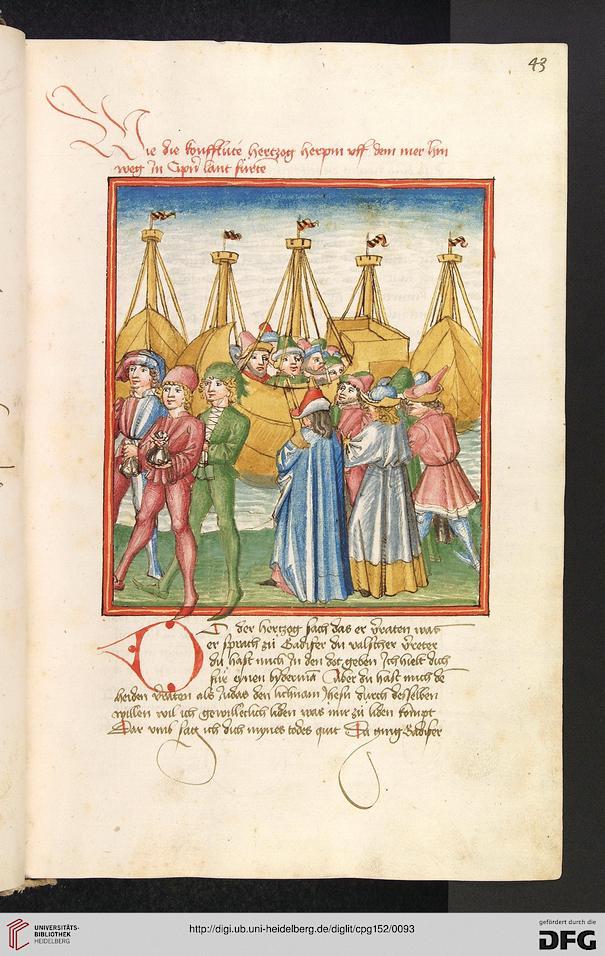 43
Wie die kouffluͤte hertzog herpin uff dem mer hin
weg jn Cipern lant furte
Do der hertzog sach das er verraten was
er sprach zuͤ Gadifer du valscher verreter
du hast mich jn den dot geben Jch hielt dich
fur eynen byderman Aber du hast mich de
heiden verraten als Judas den lichnam Jhesu durch desselben
willen wil ich gewilleclich liden was mir zuͤ liden kompt
Dar vmb sag ich dich mynes todes quit Da ging Gadifer
UNIVERSITÄTS-
BIBLIOTHEK
HEIDELBERG
http://digi.ub.uni-heidelberg.de/diglit/cpg152/0093
gefördert durch die
DFG